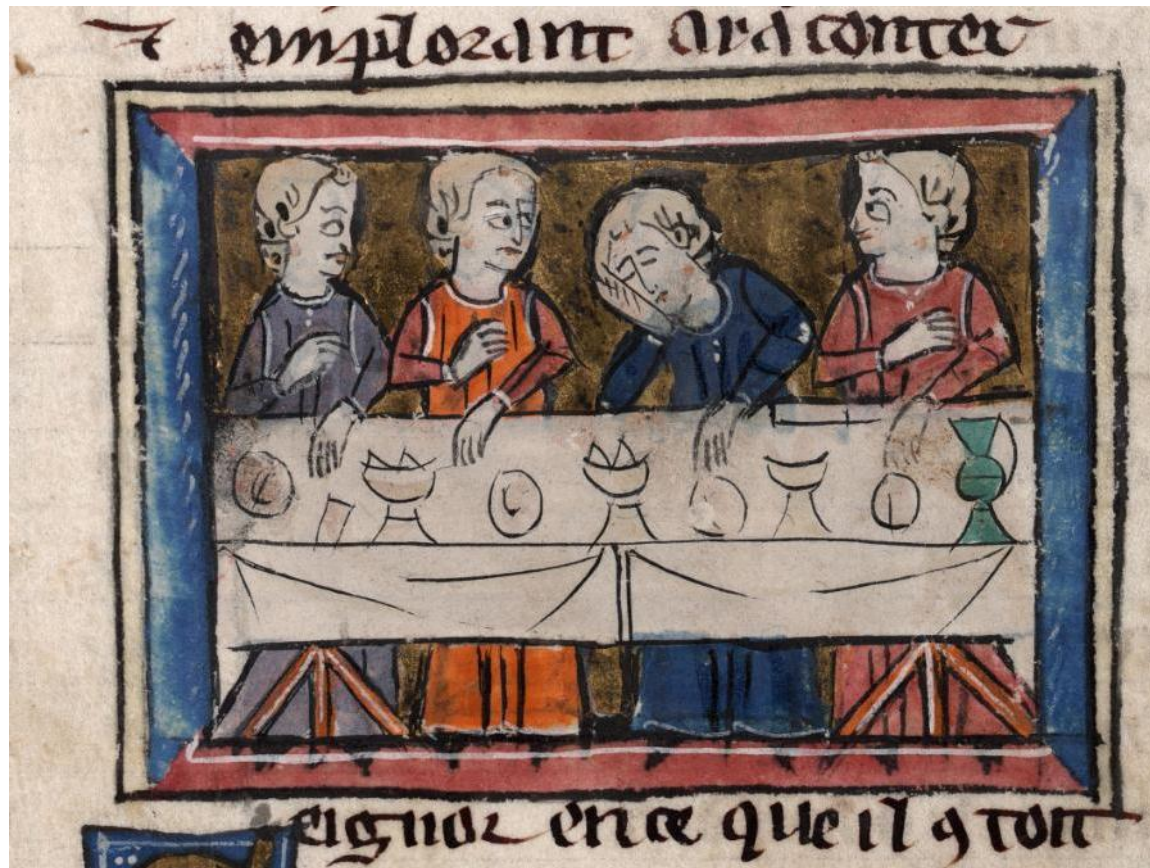 ⁊ emplorant araconter
eignor en ce que il ꝯtoit